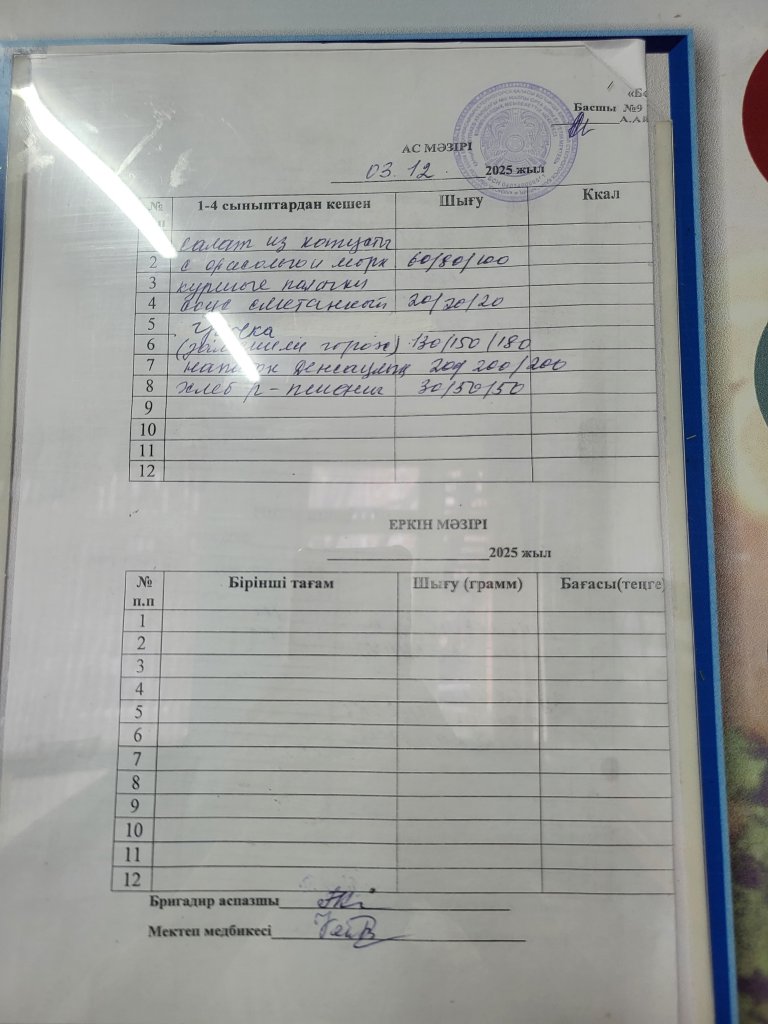 Басты №9
АС МӘЗІРІ
03.12. 2025 жыл
№ 1-4 сыныптардан кешен Шығу Ккал
салат из капусты
2 с фасолью и морк 60/80/100
3 куриные палочки
4 соус сметанный 20/20/20
5 Гречка
6 горох) 130/150/180
7 напиток Денсаулық 200/200
8 хлеб р-пшенич 30/50/50
9
10
11
12
ЕРКІН МӘЗІРІ
2025 жыл
№ п.п Бірінші тағам Шығу (грамм) Бағасы(теңге)
1
2
3
4
5
6
7
8
9
10
11
12
Бригадир аспазшы
Мектеп медбикесі